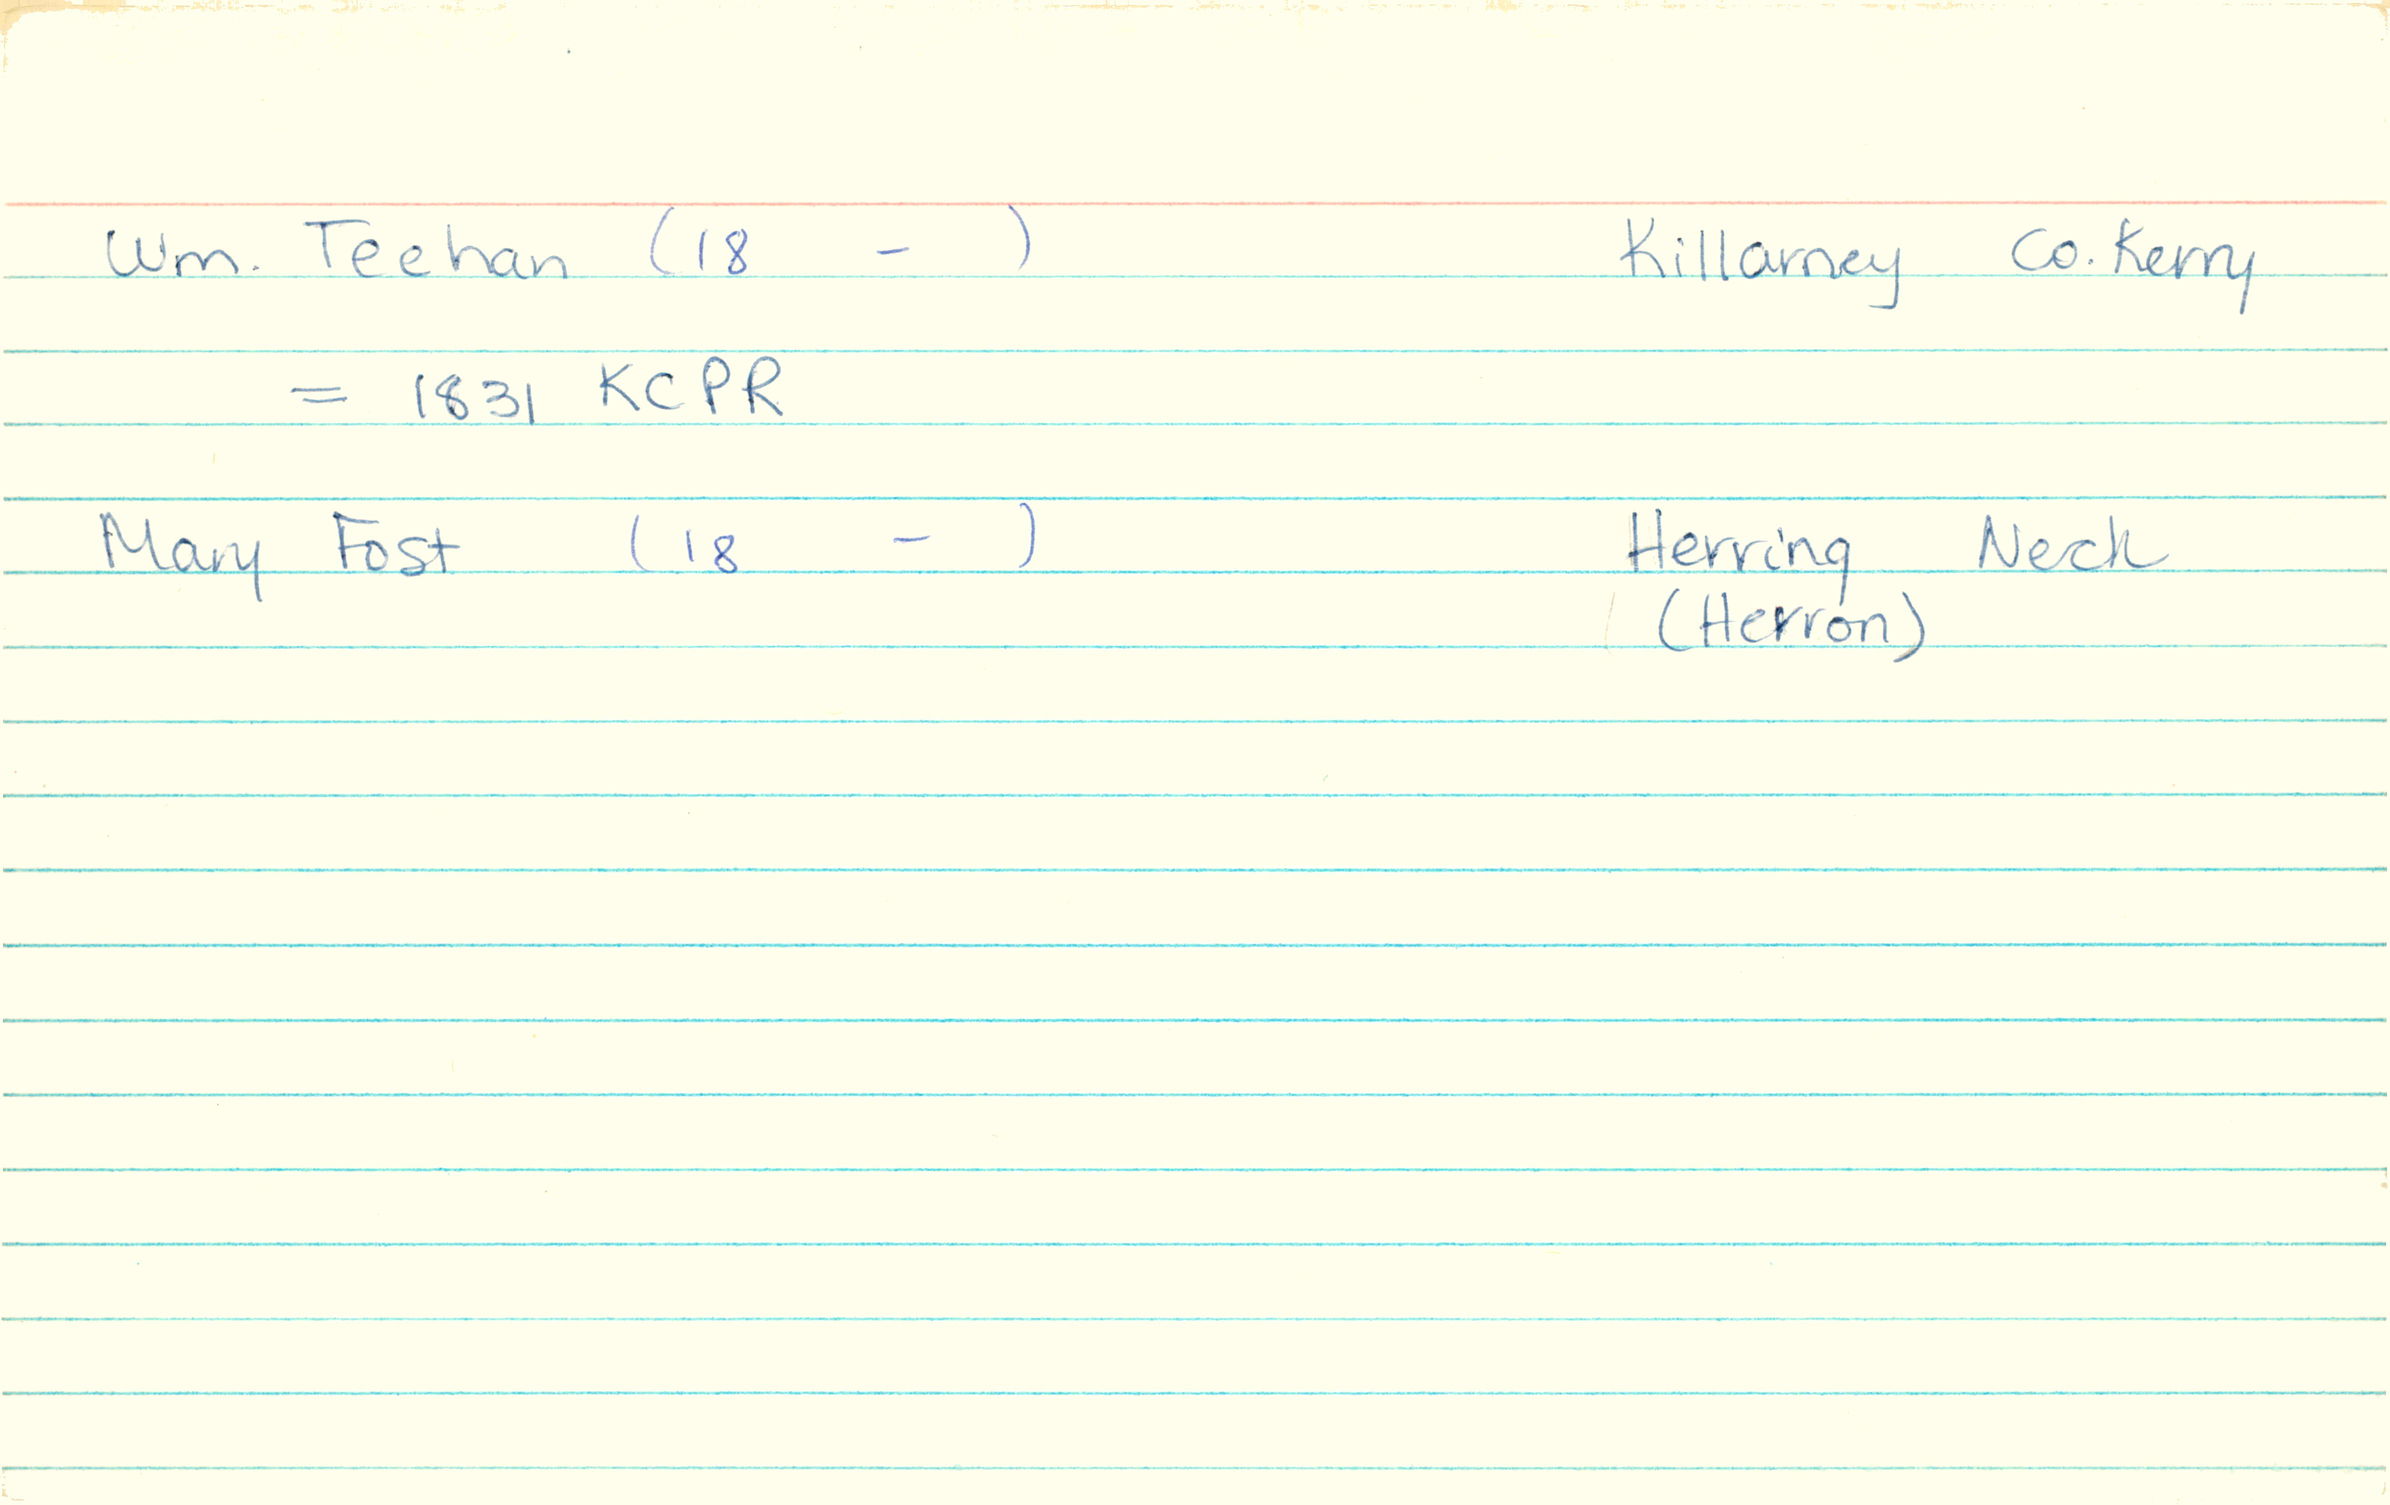 Wm. Teehan (18 - ) Killarney Co. Kerry
= 1831 KCPR
Mary Fost (18 - ) Herring Neck
(Herron)